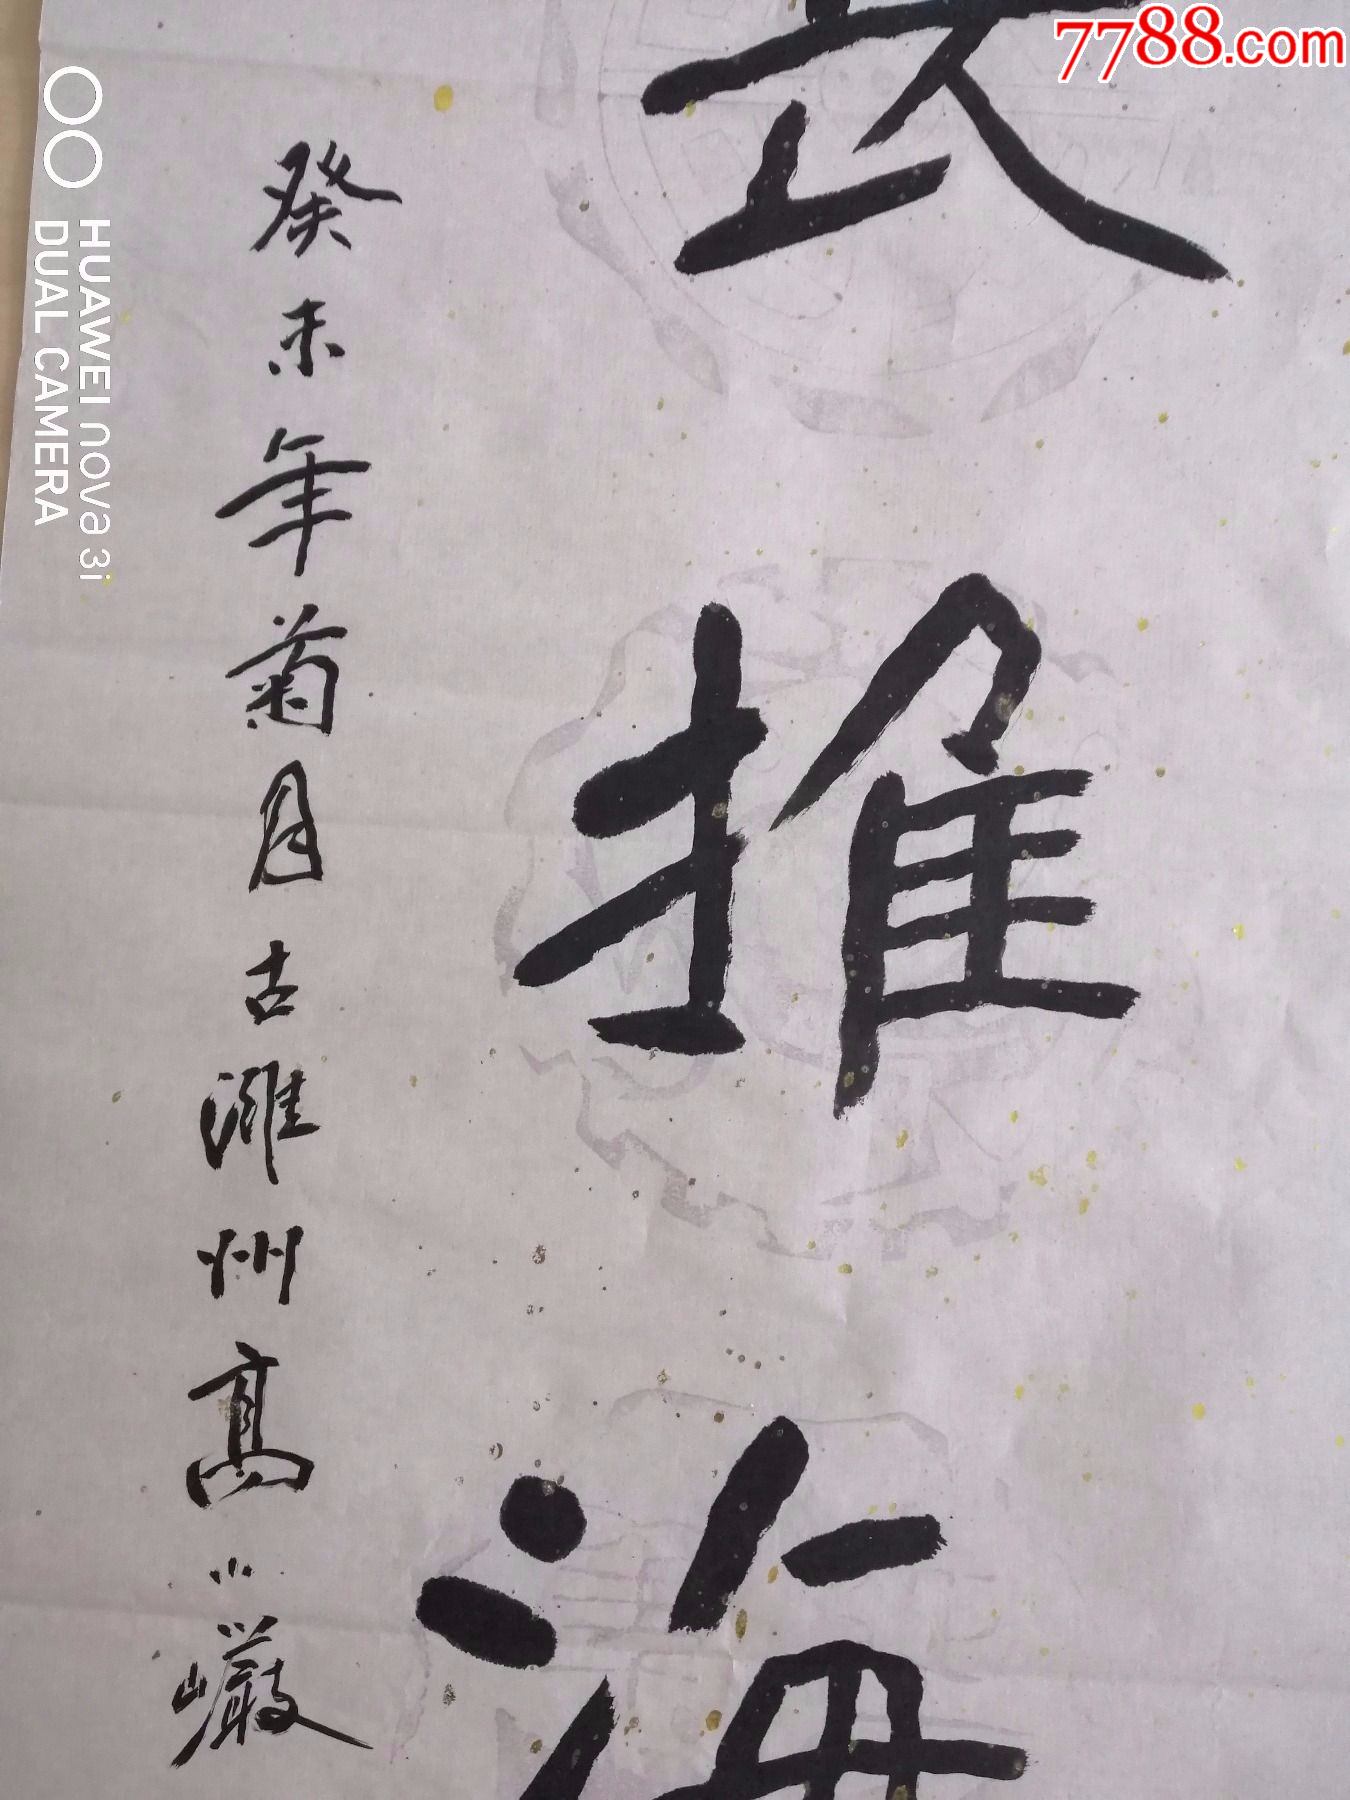 7788.com
推海
癸未年菊月古潍州高小巖
HUAWEI nova 3i
DUAL CAMERA